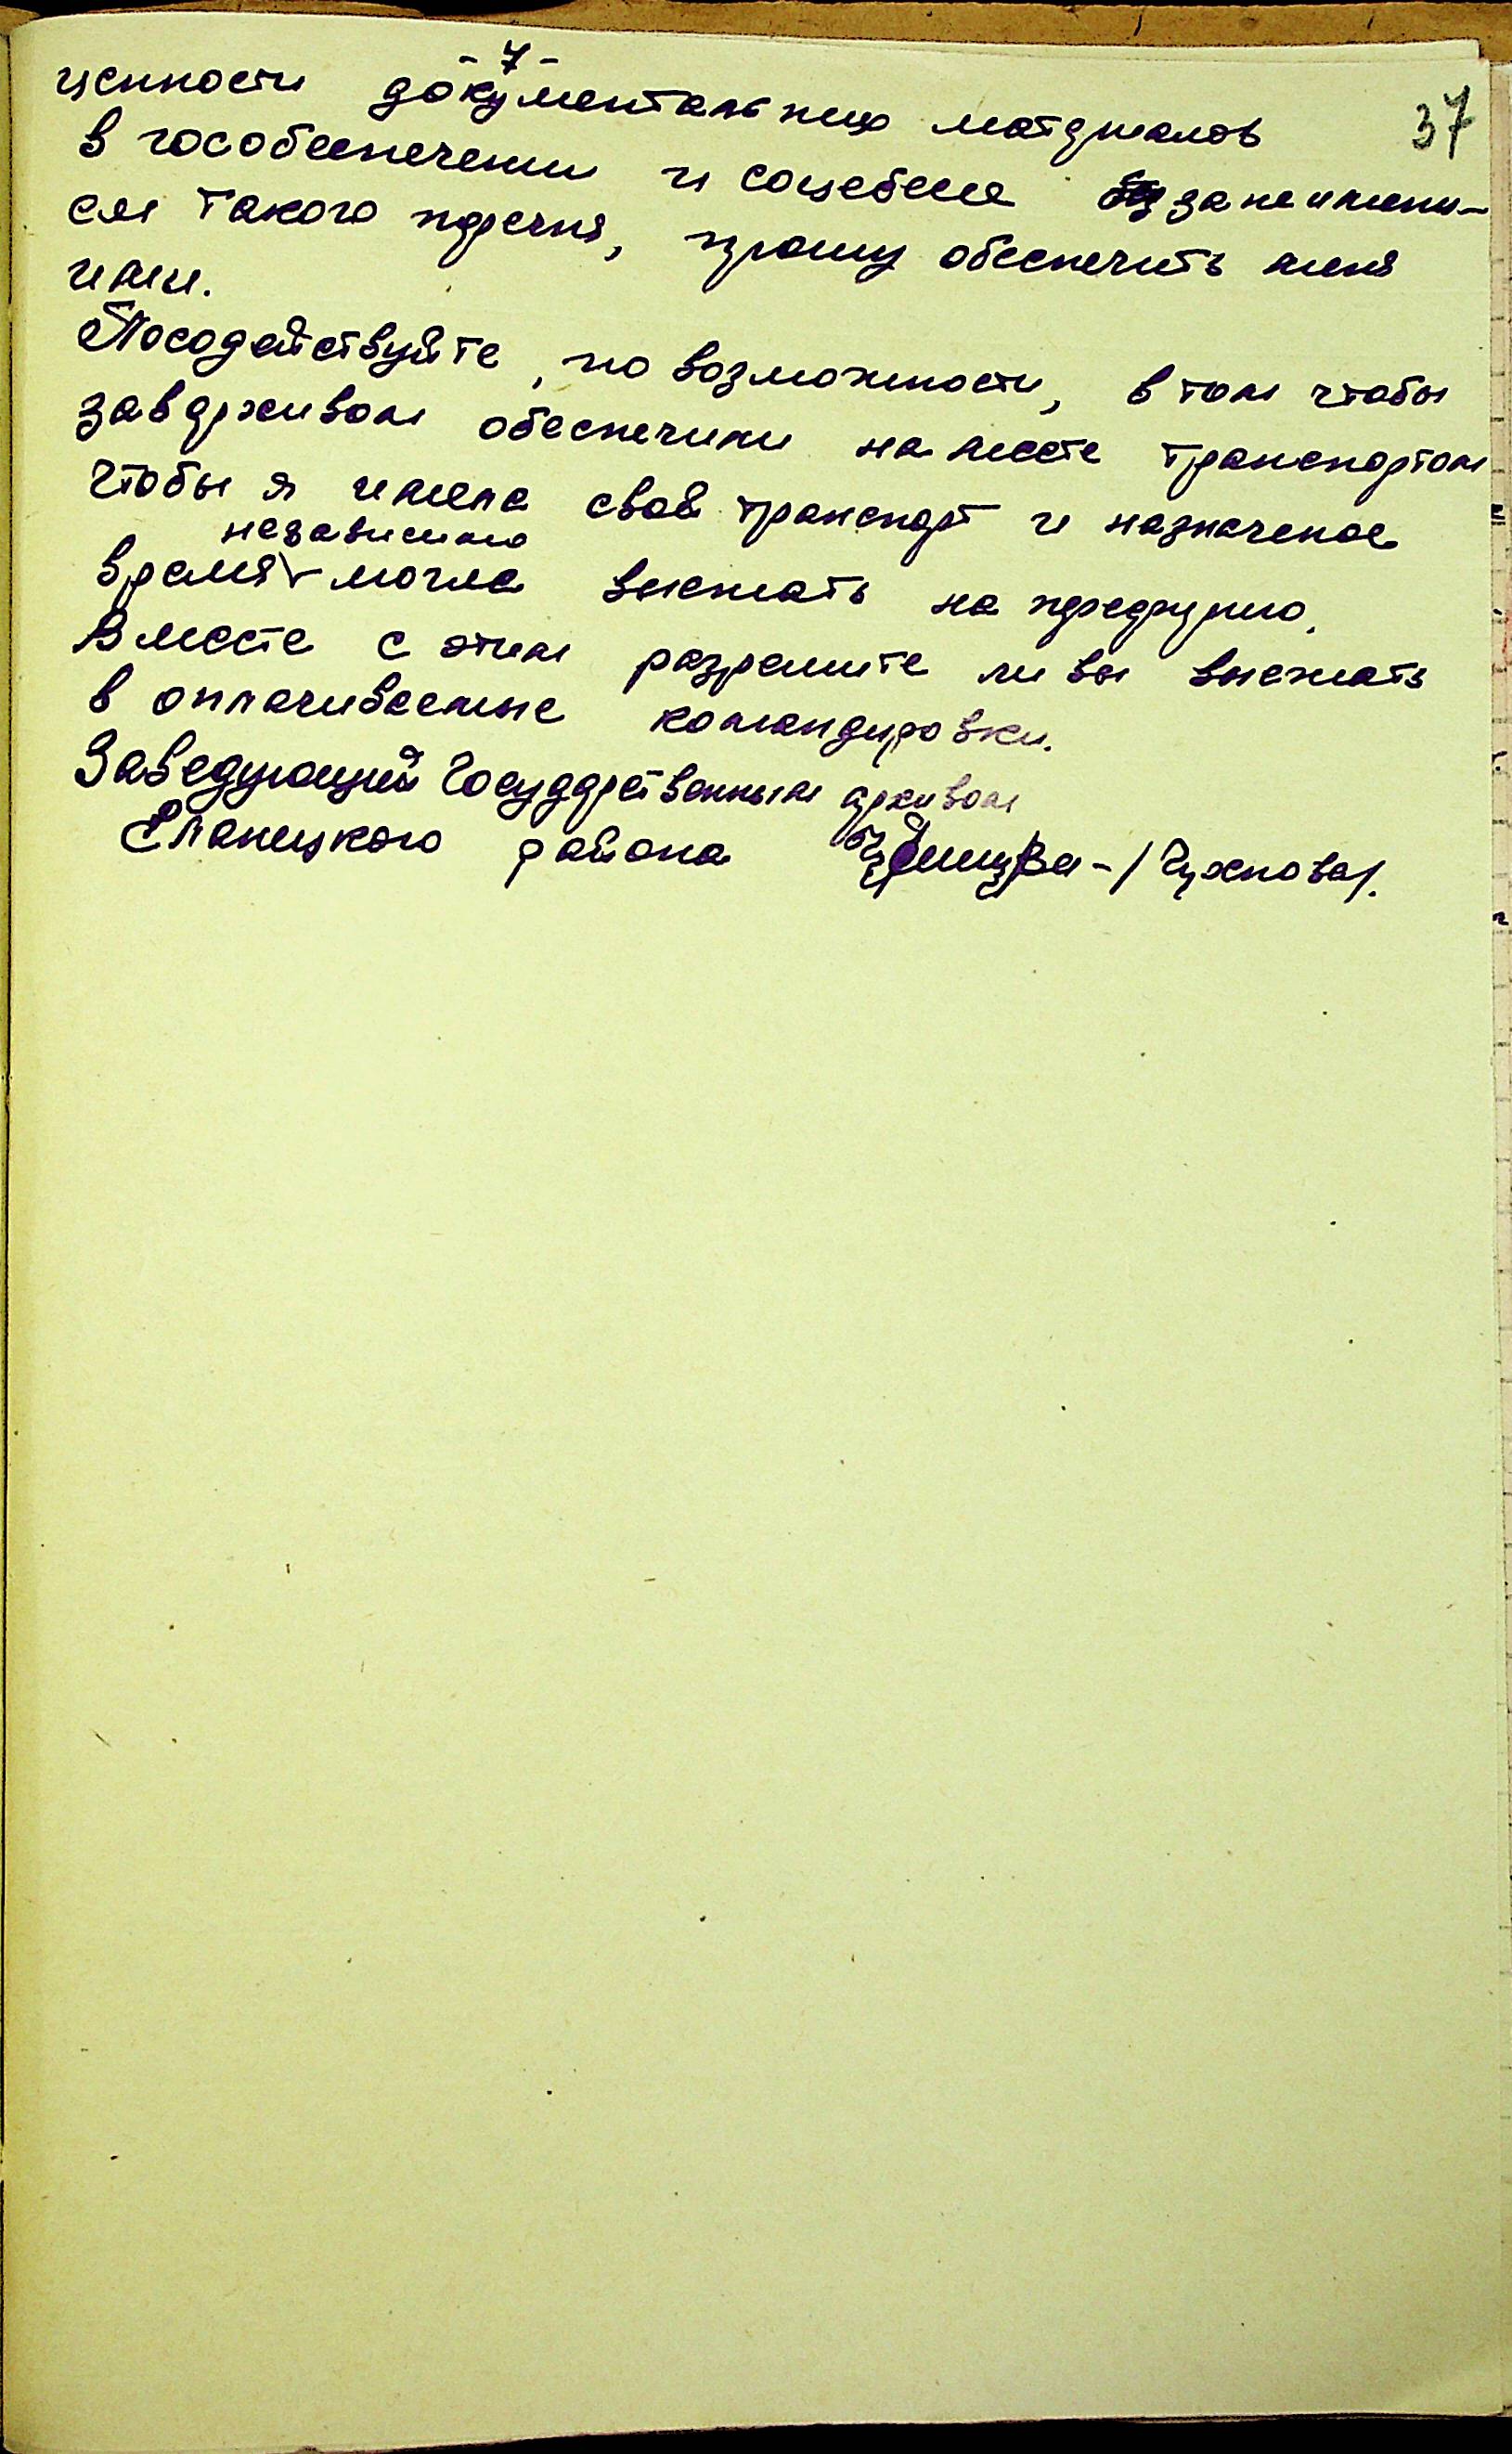 - 7 -
37
ценности документальних матдриалов
в гособеспечении и соцебесе за неимени-
ем такого пдречня, прошу обеспечить меня
ими.
Посодействуйте, по возможности, в том чтобы
завархивом обеспечили на месте транспортом
чтобы я имела свой транспорт и назначеное
независимо
время могла выежать на пдредрузию.
Вместе с этим разрешите ли вы выежать
в оплачиваемые командировки.
Заведующий Государственным архивом
Еланецкого района -/Чухнова/.